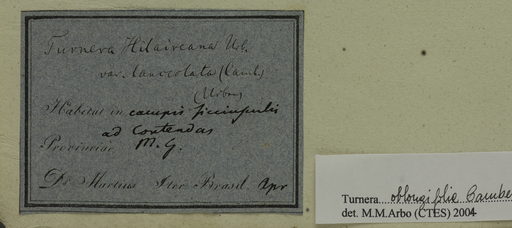 Turnera Hilaireana Urb.
var. lanceolata (Camb.)
(Urban)
Habitat in campis
ad Contendas
Provinciae M. G.
Dr Martius Iter Brasil. Apr
Turnera oblongifolia Cambess
det. M.M.Arbo (CTES) 2004